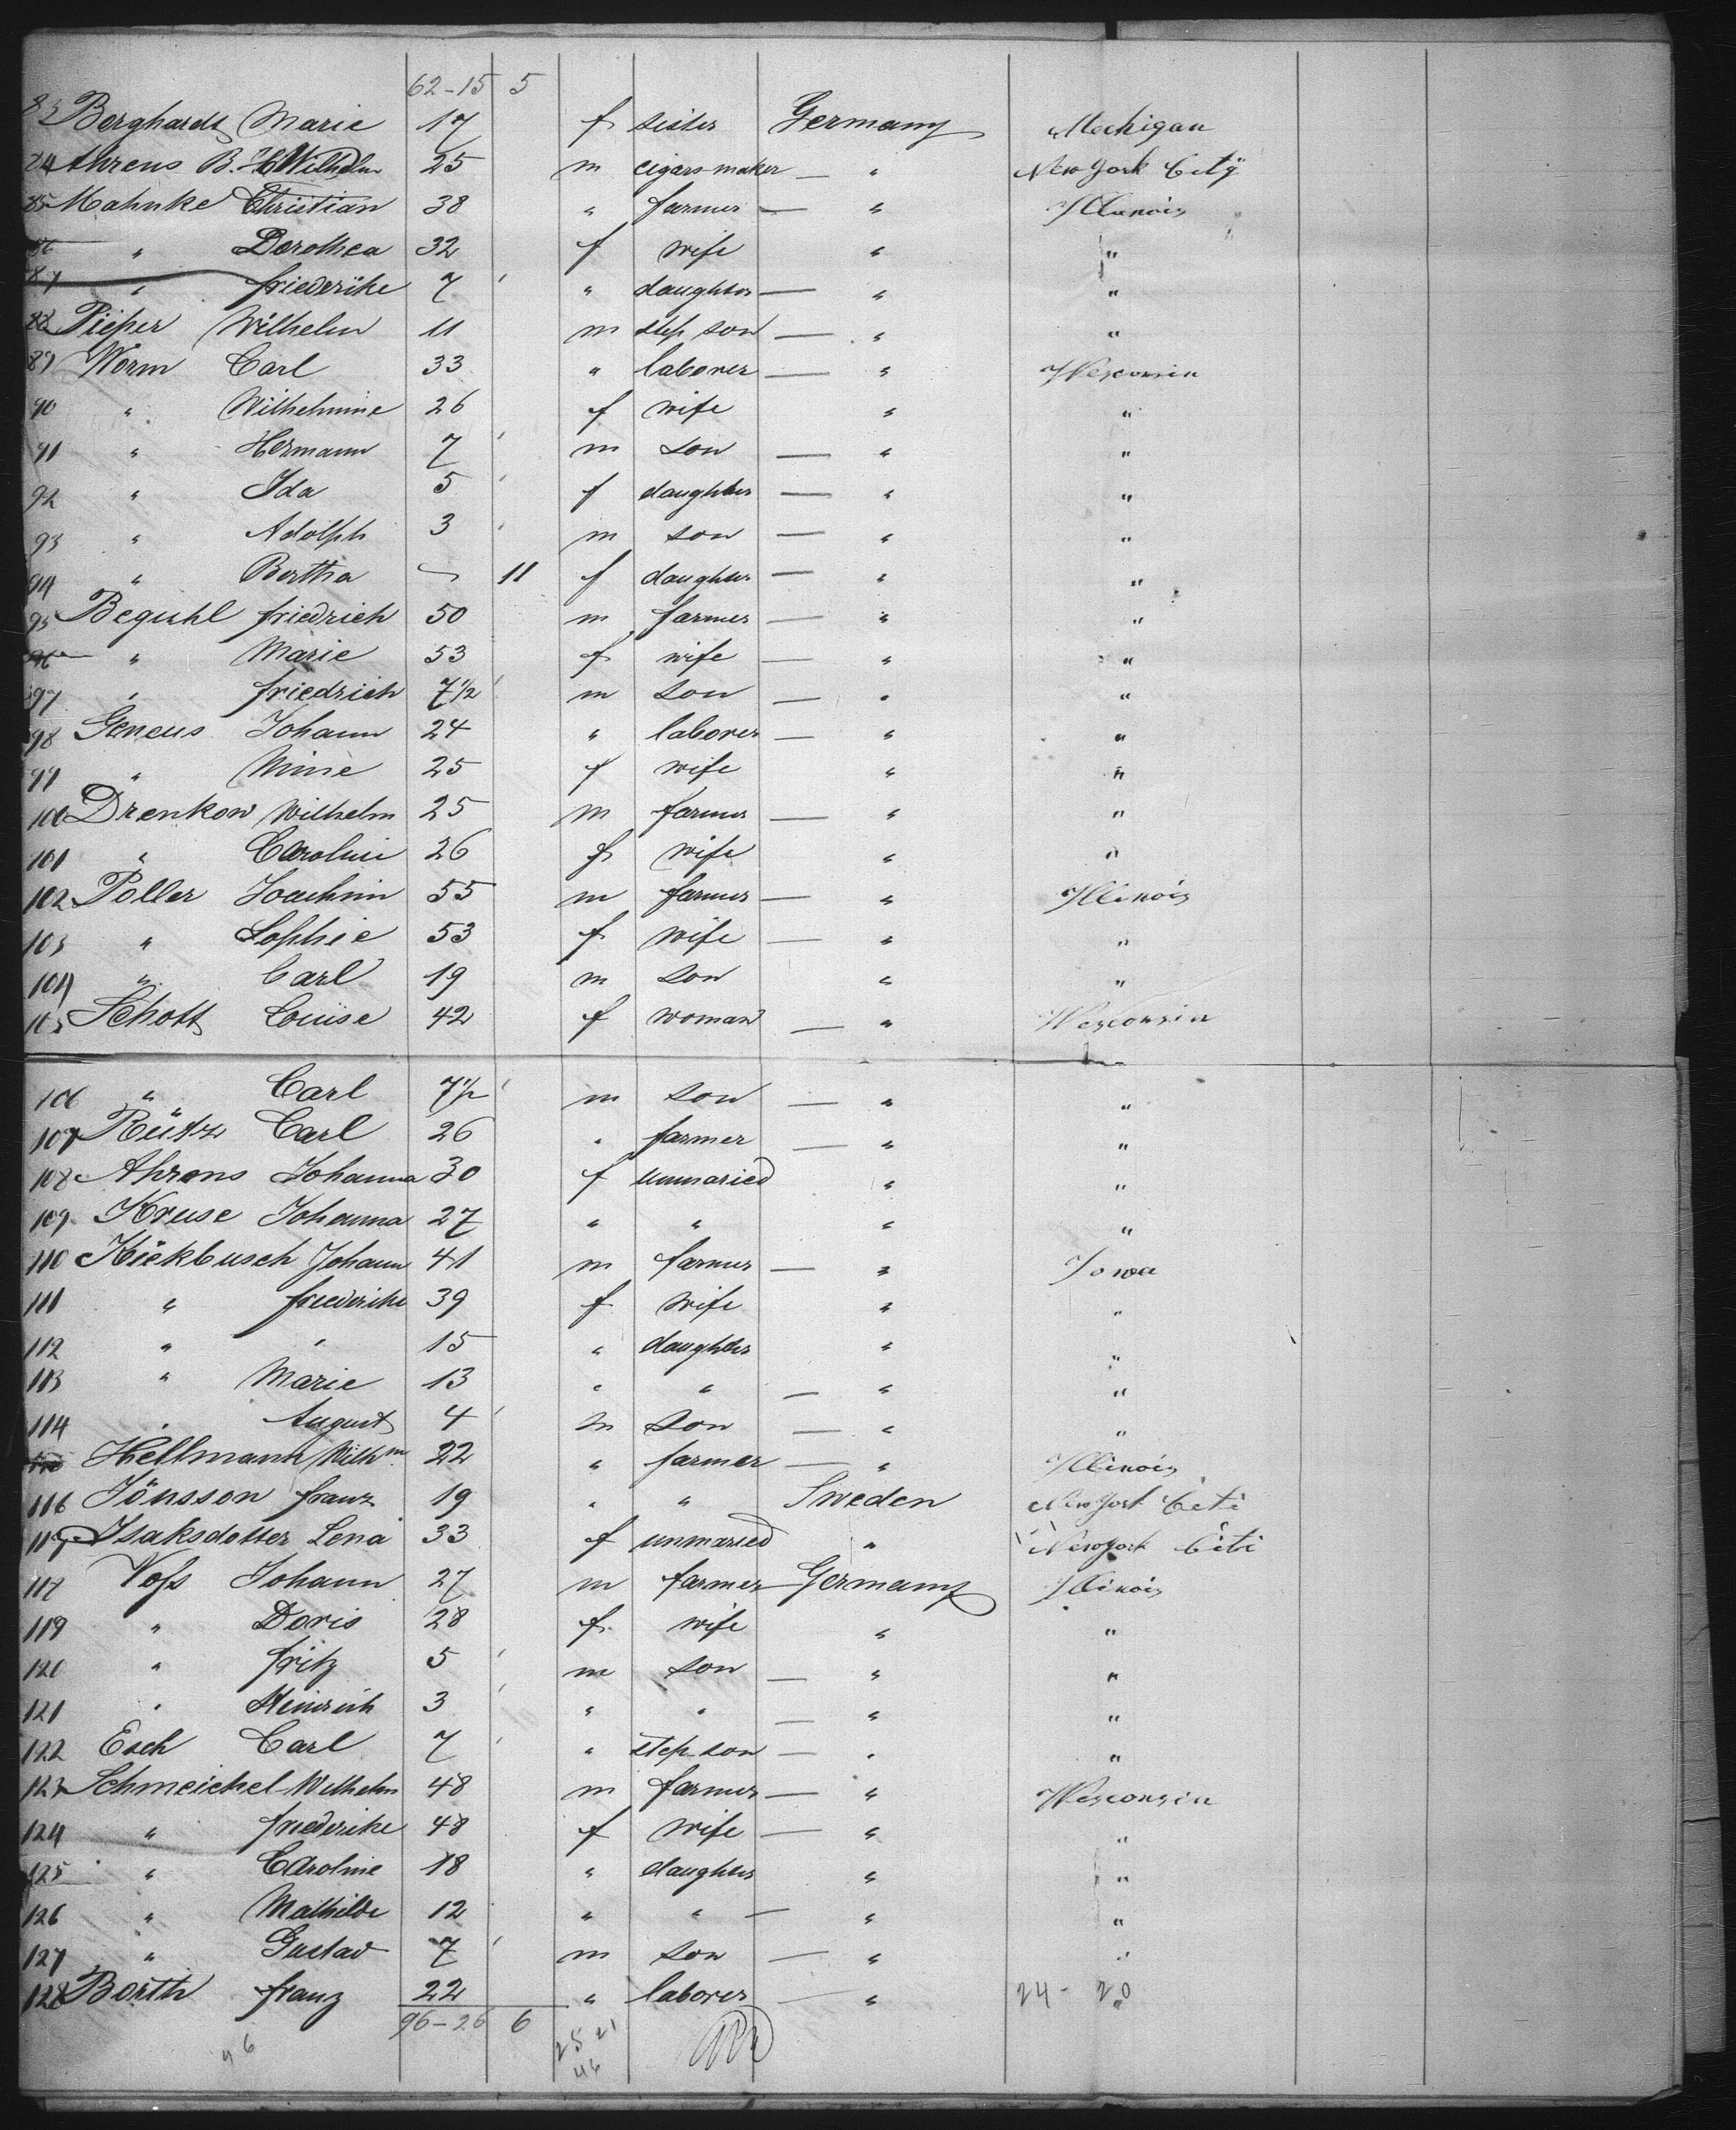 62-15 5
83 Borghardt Marie 17 f sister Germany Mechigan
84 Ahrens B. H. Wilhelm 25 m cigars maker — " New York City
85 Mahnke Christian 38 " farmer — " Illinois
86 " Dorothea 32 f wife " "
87 " friederike 7 ' " daughter — " "
88 Pieper Wilhelm 11 m step son — " "
89 Worm Carl 33 " laborer — " Wesconsin
90 " Wilhelmine 26 f wife " "
91 " Hermann 7 ' m son — " "
92 " Ida 5 ' f daughter — " "
93 " Adolph 3 ' m son — " "
94 " Bertha — 11 f daughter — " "
95 Beguhl friedrich 50 m farmer — " "
96 " Marie 53 f wife — " "
97 " friedrich 7 1/2 ' m son — " "
98 Geneus Johann 24 " laborer — " "
99 " Mine 25 f wife " "
100 Drenkow Wilhelm 25 m farmer — " "
101 " Caroline 26 f wife " "
102 Poller Joachim 55 m farmer — " Illinois
103 " Sophie 53 f wife — " "
104 " Carl 19 m son " "
105 Schott Louise 42 f woman — " Wesconsin
106 " Carl 7 1/2 ' m son — " "
107 Rütz Carl 26 " farmer — " "
108 Ahrens Johanna 30 f unmaried " "
109 Kruse Johanna 27 " " " "
110 Kiekbusch Johann 41 m farmer — " Iowa
111 " friederike 39 f wife " "
112 " " 15 " daughter " "
113 " Marie 13 " " — " "
114 " August 4 ' m son — " "
115 Hellmann Wilhm 22 " farmer — " Illinois
116 Jönsson franz 19 " " Sweden New York Citi
117 Isaksdotter Lena 33 f unmaried " New York Citi
118 Voss Johann 27 m farmer Germany Illinois
119 " Doris 28 f wife " "
120 " fritz 5 ' m son — " "
121 " Heinrich 3 ' " " — " "
122 Esch Carl 7 ' " step-son — " "
123 Schmeichel Wilhelm 48 m farmer — " Wesconsin
124 " friederike 48 f wife — " "
125 " Caroline 18 " daughter " "
126 " Mathilde 12 " " — " "
127 " Gustav 7 ' m son — " "
128 Borth franz 22 " laborer — " "
24 - 20
96-26 6
25 21
46
96